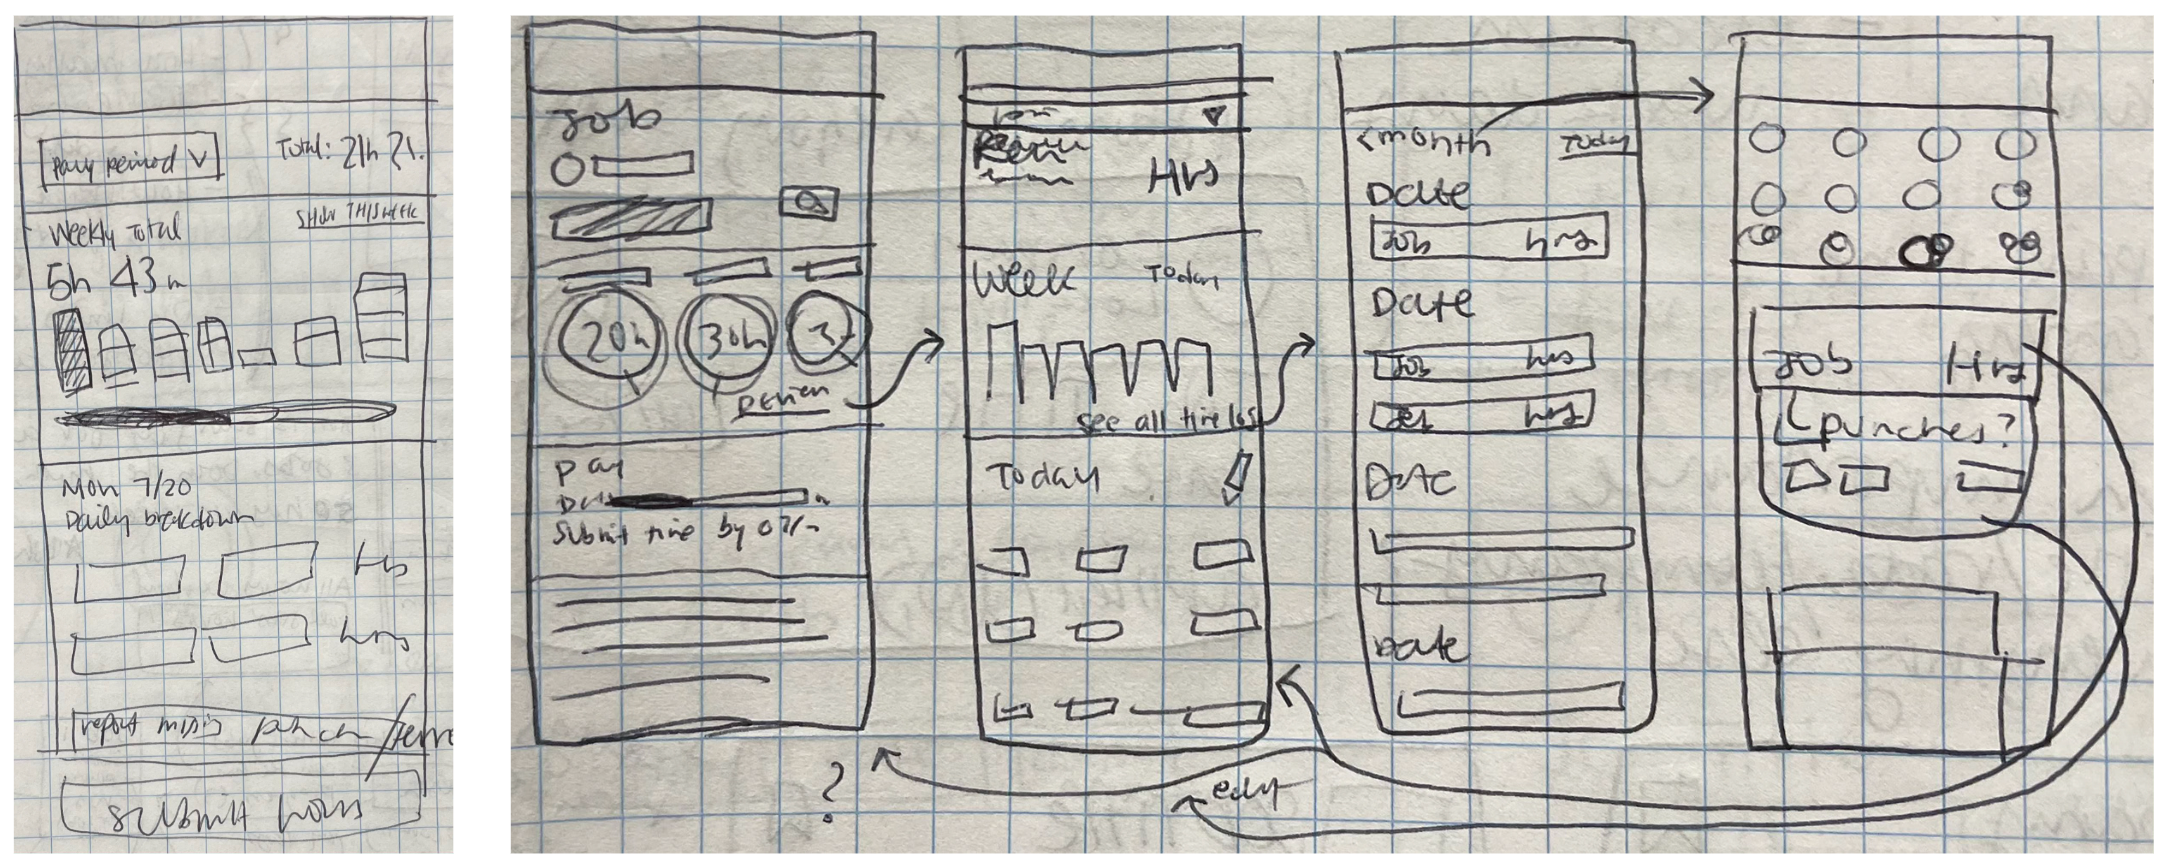 Pay period
Total: 21h 21.
Weekly Total
SHOW THIS WEEK
5h 43m
Mon 7/20
Daily breakdown
hrs
hrs
report missing punch/
submit hours
Job
20h
30h
3
review
pay
Submit time by
?
Hrs
Week
Today
see all time logs
Today
edit
<month
Today
Date
Job hrs
Date
Job hrs
Job hrs
Date
Date
Job Hrs
punches?